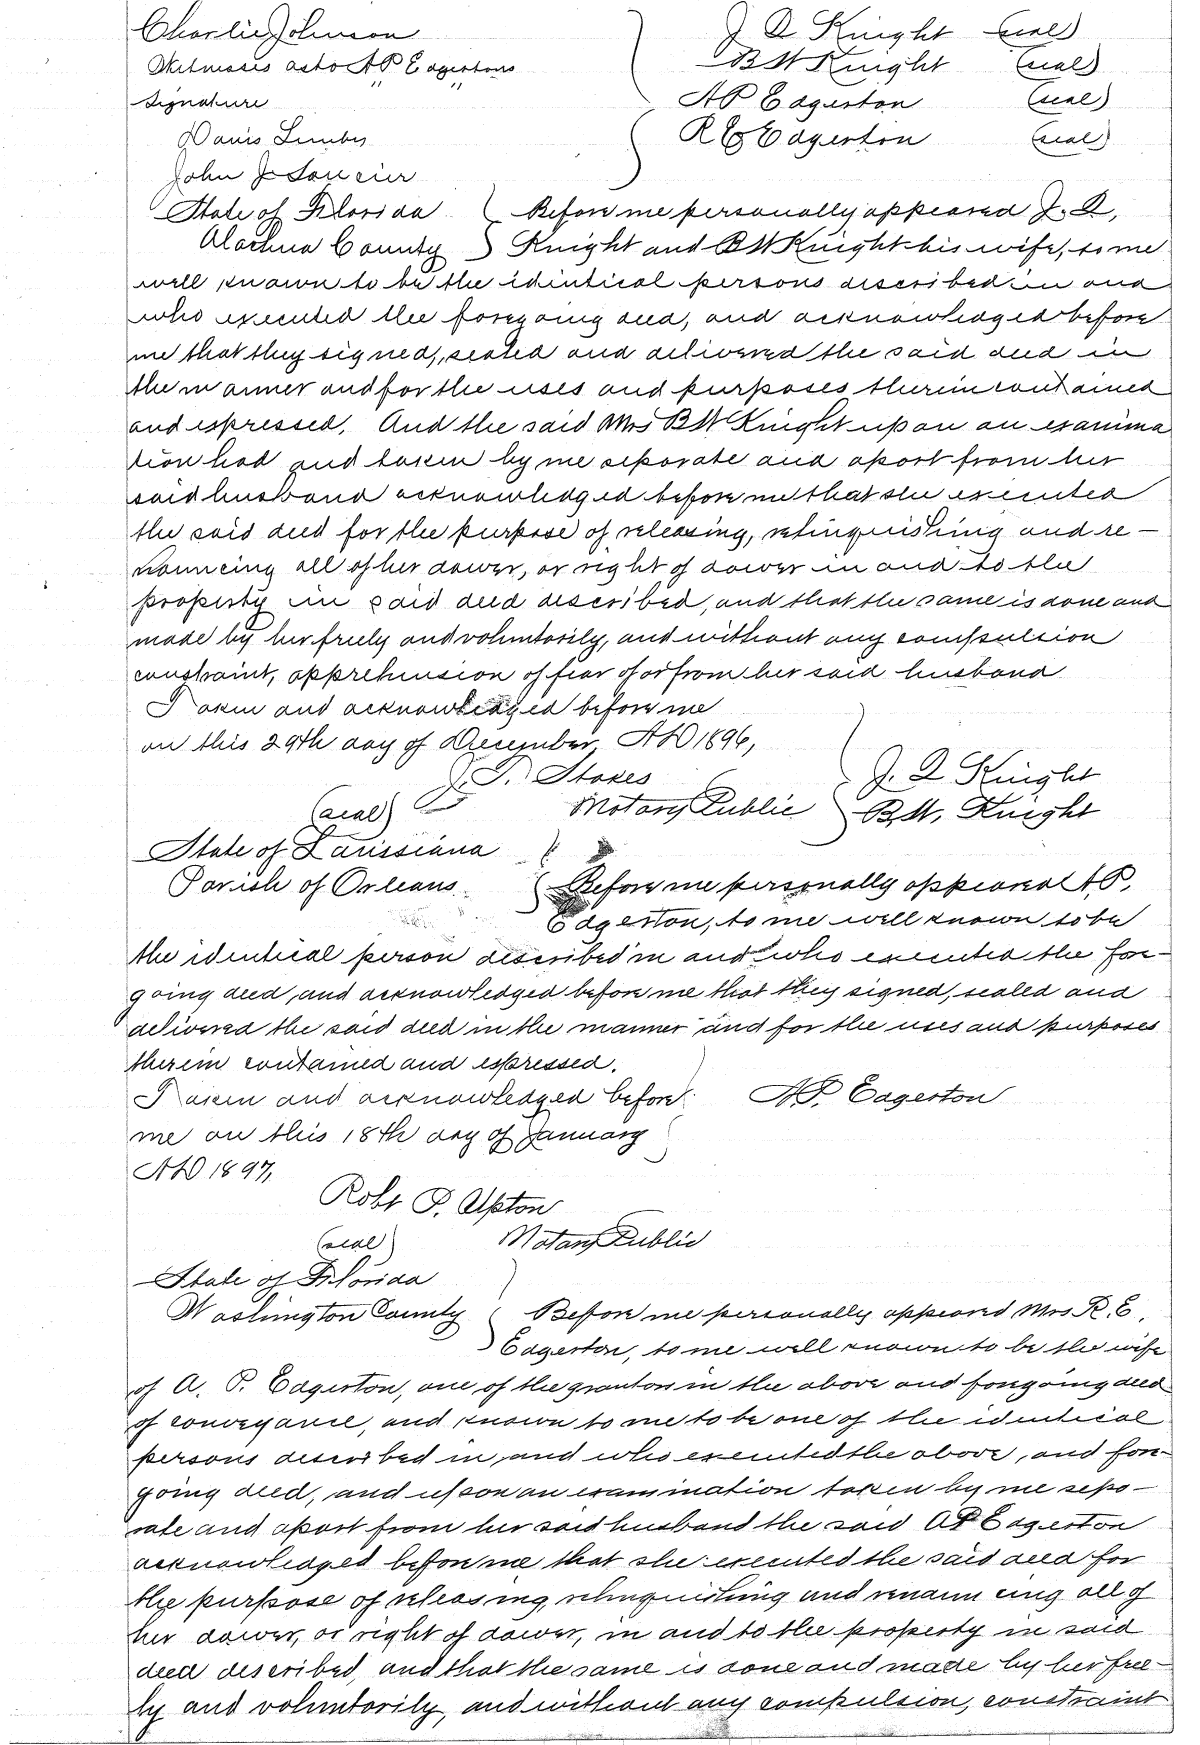 Charlie Johnson J Q Knight (seal)
Witnesses as to A P Edgertons B W Knight (seal)
Signature A P Edgerton (seal)
Davis R E Edgerton (seal)
John J Soucier
State of Florida Before me personally appeared J. Q,
Alachua County Knight and B W Knight his wife, to me
well known to be the identical persons described in and
who executed the foregoing deed, and acknowledged before
me that they signed, sealed and delivered the said deed in
the manner and for the uses and purposes therein contained
and expressed. And the said Mrs B W Knight upon an examina
tion had and taken by me separate and apart from her
said husband acknowledged before me that she executed
the said deed for the purpose of releasing, relinquishing and re-
nouncing all of her dower, or right of dower in and to the
property in said deed described, and that the same is done and
made by her freely and voluntarily, and without any compulsion
constraint, apprehension of fear of or from her said husband
Taken and acknowledged before me
on this 29th day of December AD 1896,
J. T. Stokes J. Q Knight
(seal) Notary Public B W. Knight
State of Louissiana
Parish of Orleans Before me personally appeared A P.
Edgerton, to me well known to be
the identical person described in and who executed the fore-
going deed, and acknowledged before me that they signed, sealed and
delivered the said deed in the manner and for the uses and purposes
therein contained and expressed.
Taken and acknowledged before A P. Edgerton
me on this 18th day of January
AD 1897,
Robt P. Upton
(seal) Notary Public
State of Florida
Washington County Before me personally appeared Mrs R. E.
Edgerton, to me well known to be the wife
of A. P. Edgerton, one of the grantors in the above and foregoing deed
of conveyance, and known to me to be one of the identical
persons described in, and who executed the above, and fore-
going deed, and upon an examination taken by me sepa-
rate and apart from her said husband the said A P Edgerton
acknowledged before me that she executed the said deed for
the purpose of releasing, relinquishing and renouncing all of
her dower, or right of dower, in and to the property in said
deed described, and that the same is done and made by her free-
ly and voluntarily, and without any compulsion, constraint